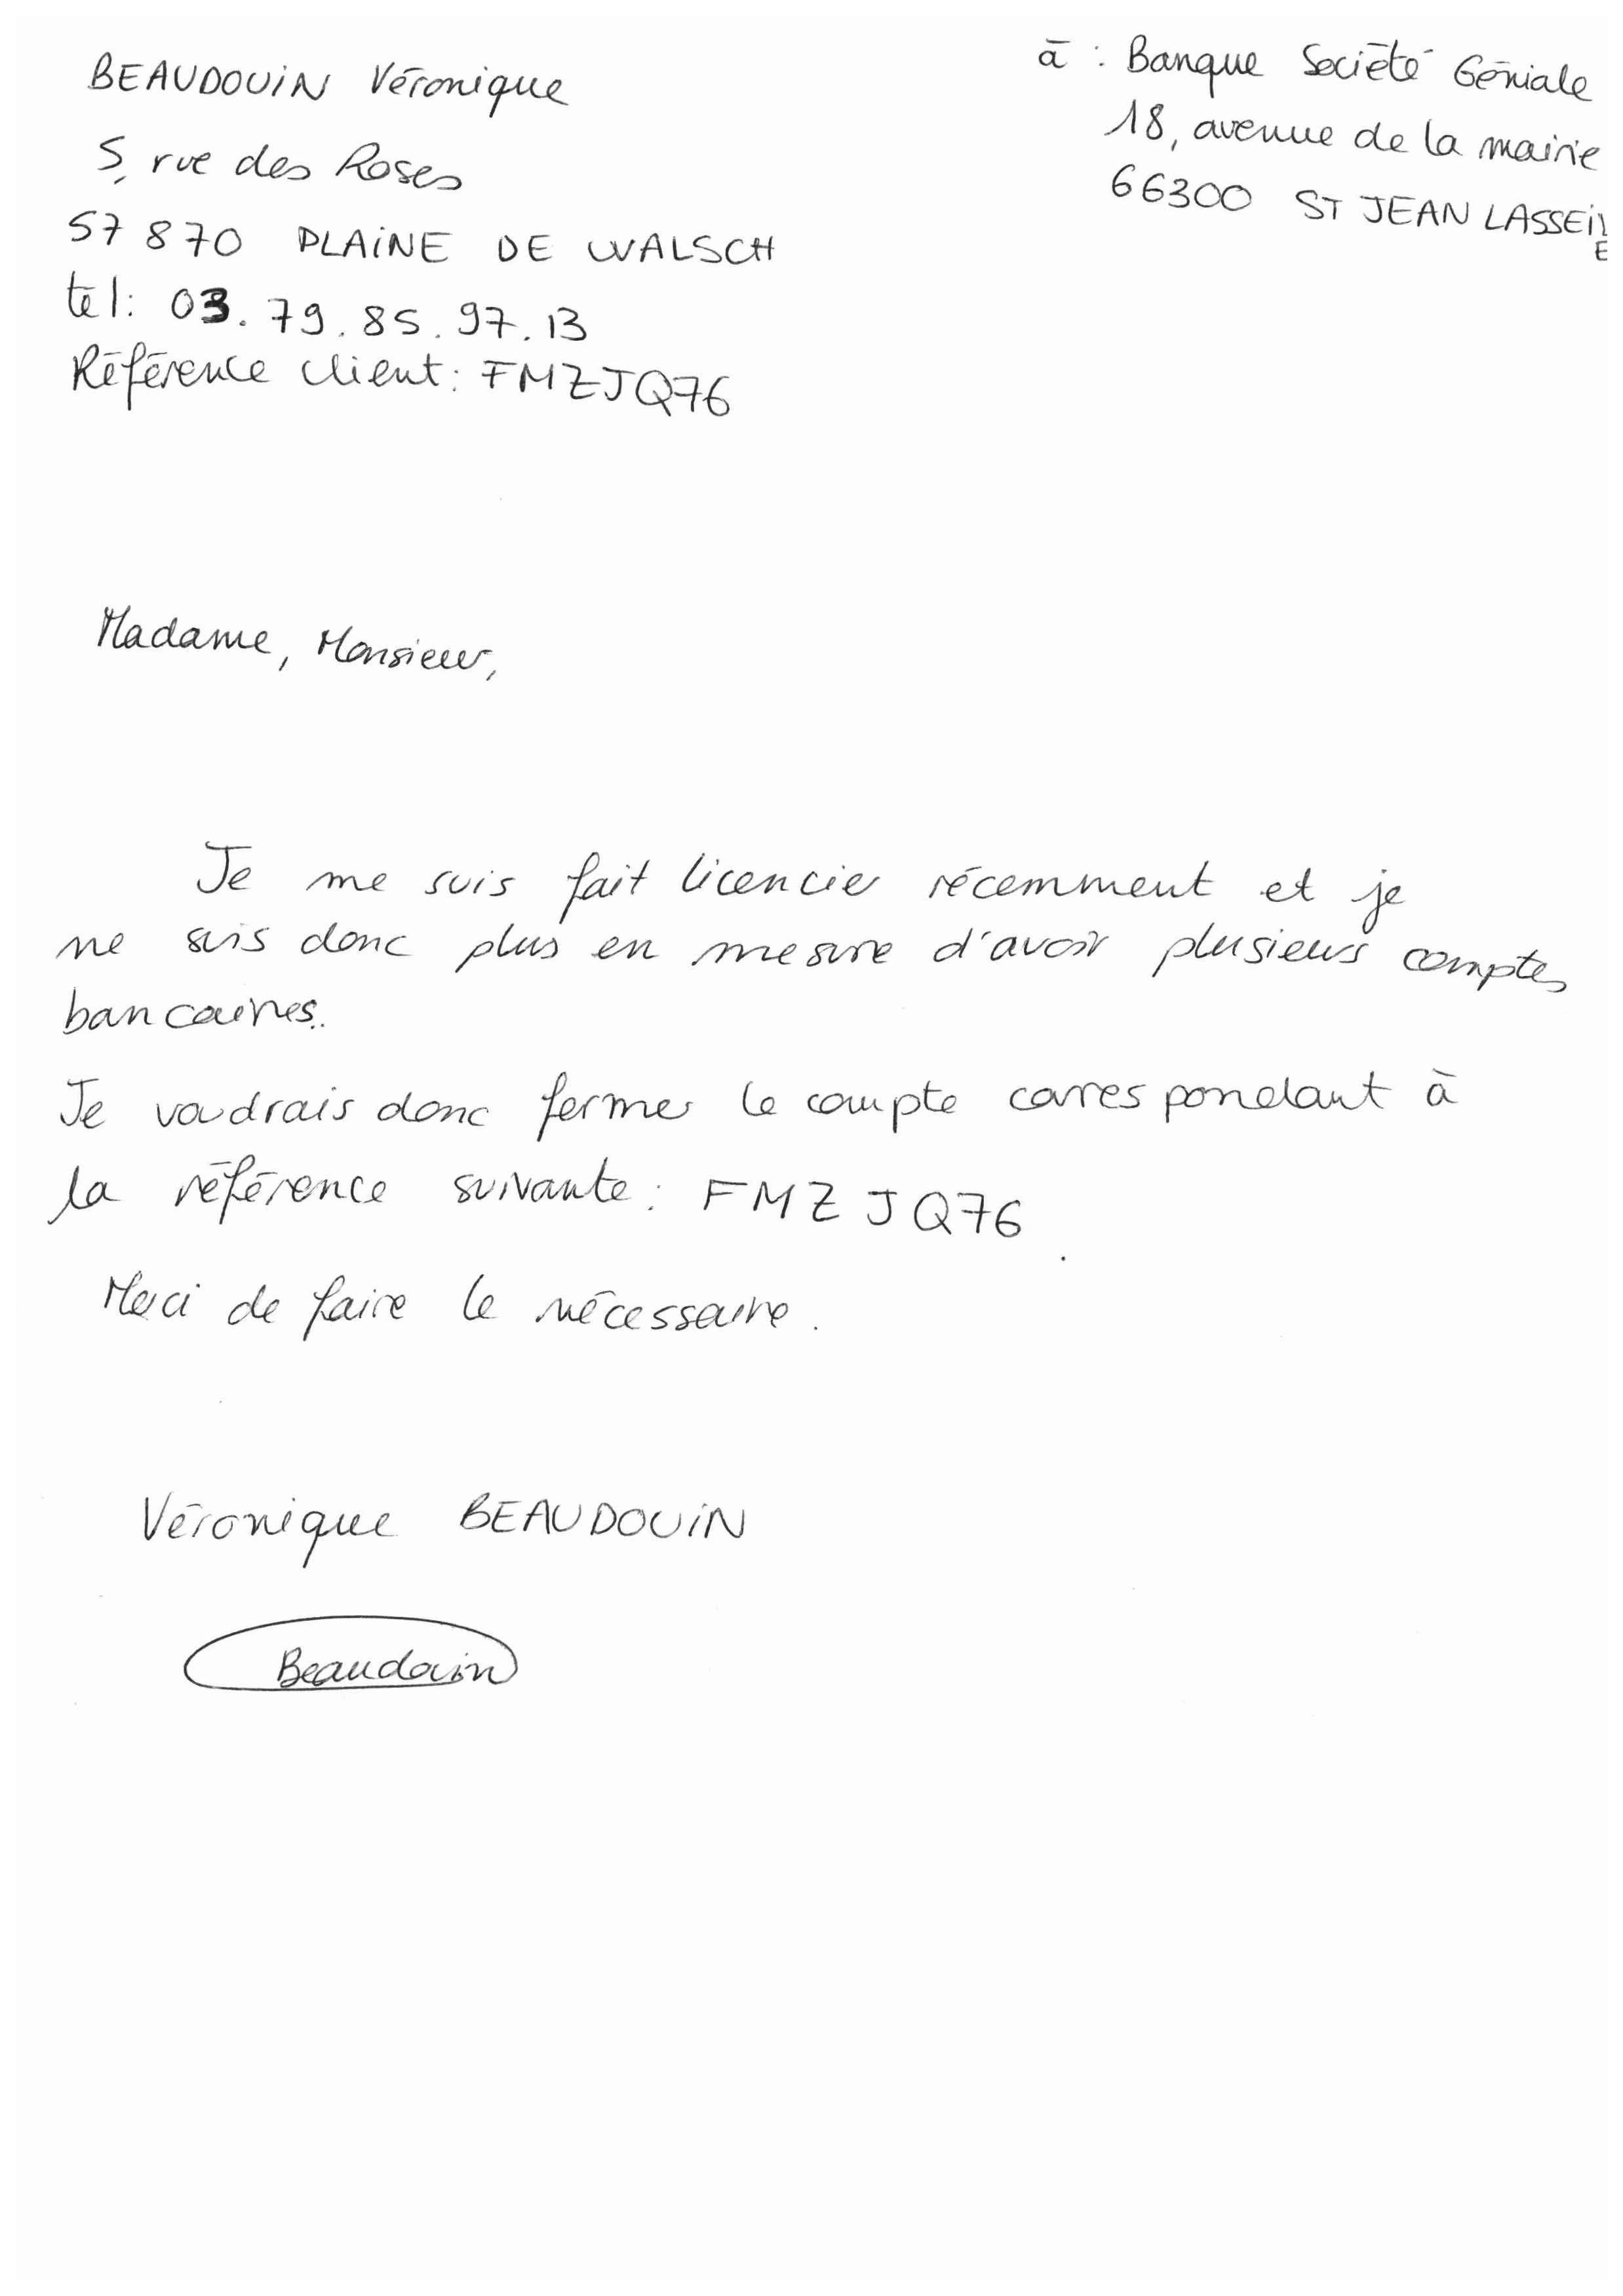 BEAUDOUIN Véronique
5, rue des Roses
57 870 PLAINE DE WALSCH
tél: 03.79.85.97.13
Référence client: FMZJQ76
à : Banque Société Géniale
18, avenue de la mairie
66300 ST JEAN LASSEIL
E
Madame, Monsieur,
Je me suis fait licencier récemment et je
ne suis donc plus en mesure d'avoir plusieurs comptes
bancaires.
Je voudrais donc fermer le compte correspondant à
la référence suivante: FMZJQ76.
Merci de faire le nécessaire.
Véronique BEAUDOUIN
Beaudouin